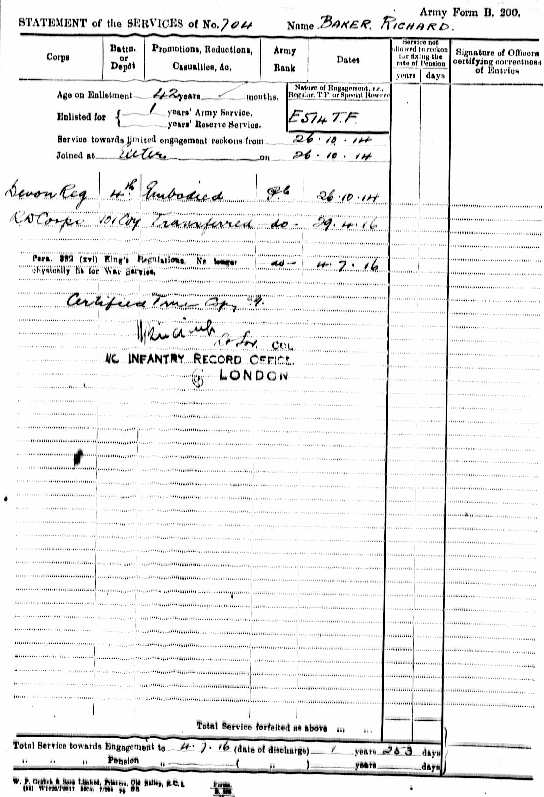 Army Form B. 200.
STATEMENT of the SERVICES of No. 704 Name BAKER, RICHARD.
Corps
Battn. or Depôt
Promotions, Reductions, Casualties, &c.
Army Rank
Dates
Service not allowed to reckon for fixing the rate of Pension
years days
Signature of Officers certifying correctness of Entries
Age on Enlistment 42 years months.
Nature of Engagement, i.e., Regular, T.F. or Special Reserve
Enlisted for { 1 years' Army Service.
years' Reserve Service.
E514 T.F.
Service towards limited engagement reckons from 26.10.14
Joined at Exeter on 26.10.14
Devon Reg 4th Embodied Pte 26.10.14
R D Corps 101 Coy Transferred do - 29.4.16
Para. 392 (xvi) King's Regulations. No longer physically fit for War Service. do - 4.7.16
Certified True Copy
Col
I/C INFANTRY RECORD OFFICE.
LONDON
Total Service forfeited as above ... ...
Total Service towards Engagement to 4.7.16 (date of discharge) 1 years 253 days
" " Pension " ( " ) years days